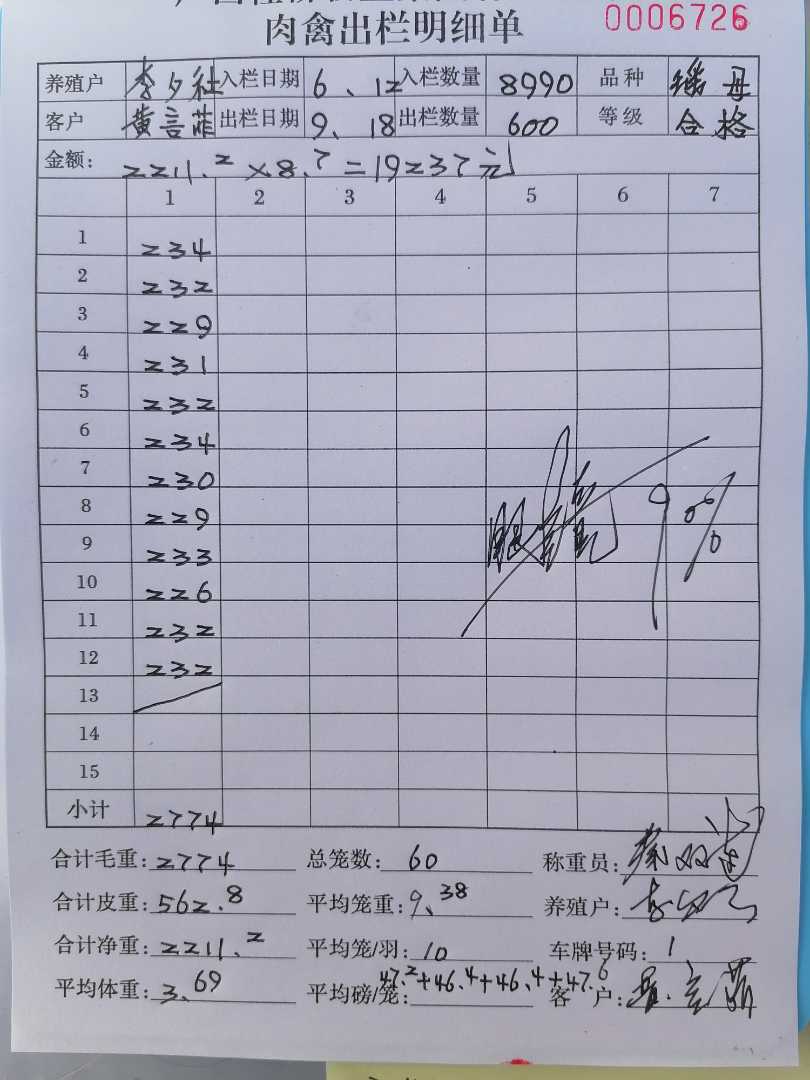 肉禽出栏明细单 0006726
养殖户 李夕社 入栏日期 6、12 入栏数量 8990 品种 瑶母
客户 黄言菲 出栏日期 9、18 出栏数量 600 等级 合格
金额: 2211.2×8.7=19237元
1 2 3 4 5 6 7
1 234
2 232
3 229
4 231
5 232
6 234
7 230
8 229
9 233
10 226
11 232
12 232
13
14
15
小计 2774
合计毛重: 2774 总笼数: 60 称重员:
合计皮重: 562.8 平均笼重: 9.38 养殖户:
合计净重: 2211.2 平均笼/羽: 10 车牌号码: 1
平均体重: 3.69 平均磅/笼: 47.2+46.4+46.4+47.6 客户: